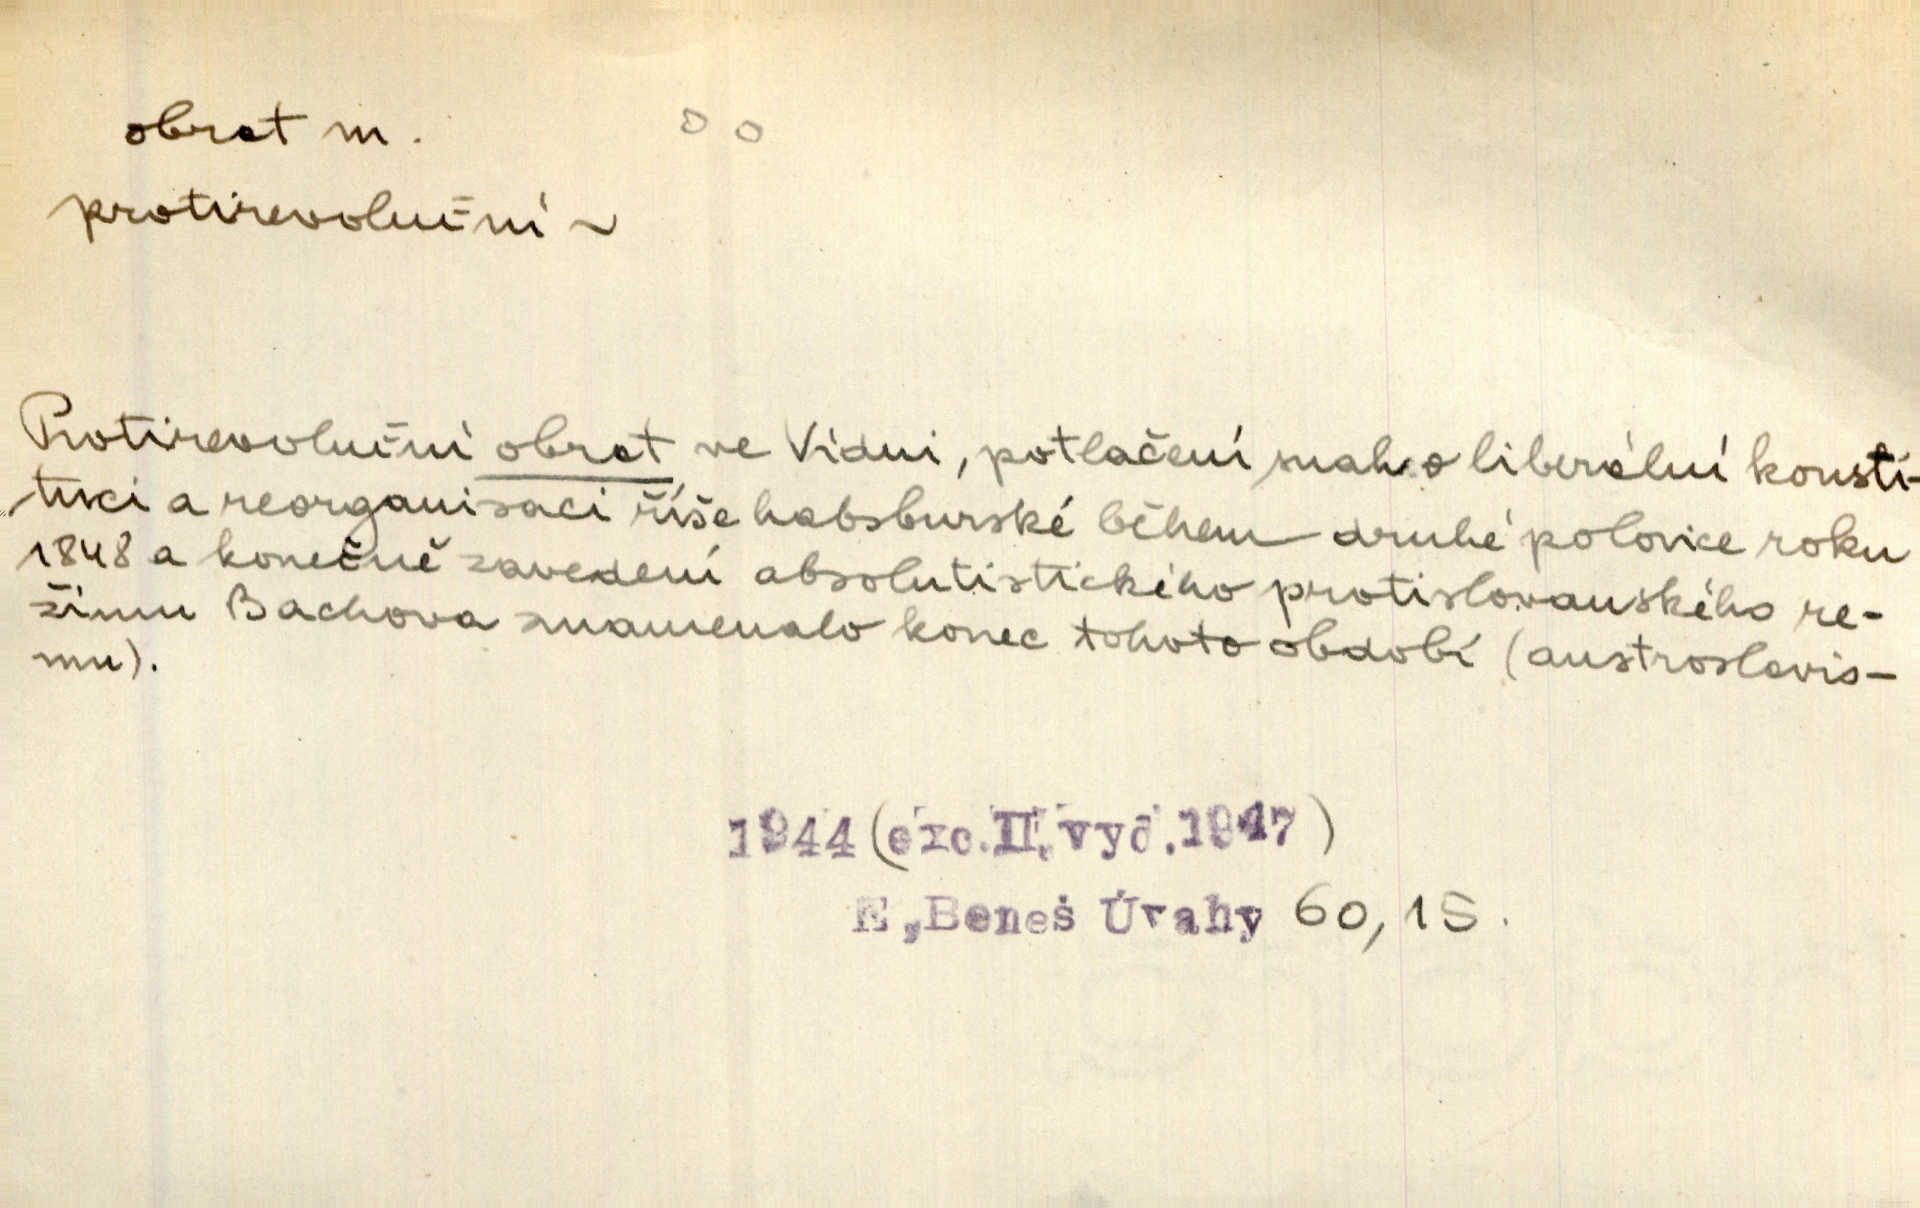 obrat m. o o
protirevoluční ~
Protirevoluční obrat ve Vídni, potlačení snah o liberální konsti-
tuci a reorganisaci říše habsburské během druhé polovice roku
1848 a konečně zavedení absolutistického protislovanského re-
žimu Bachova znamenalo konec tohoto období (austroslavis-
mu).
1944 (exc. II. vyd. 1947)
E, Beneš Úvahy 60, 15.